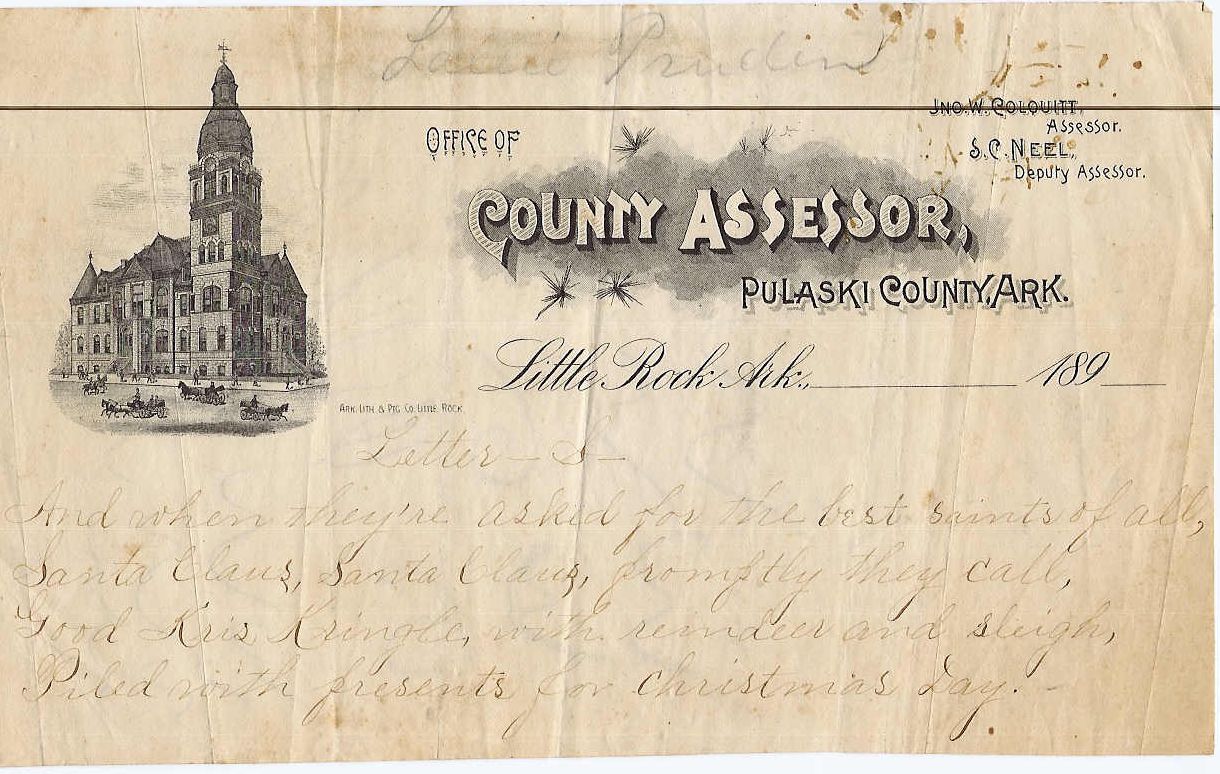 Laurie Pruden
JNO. W. COLQUITT,
Assessor.
S. C. NEEL,
Deputy Assessor.
OFFICE OF
COUNTY ASSESSOR,
PULASKI COUNTY, ARK.
Little Rock Ark., 189
ARK. LITH & PTG CO. LITTLE ROCK
Letter - S -
And when they're asked for the best saints of all,
Santa Claus, Santa Claus, promptly they call,
Good Kris Kringle, with reindeer and sleigh,
Piled with presents for Christmas Day. -